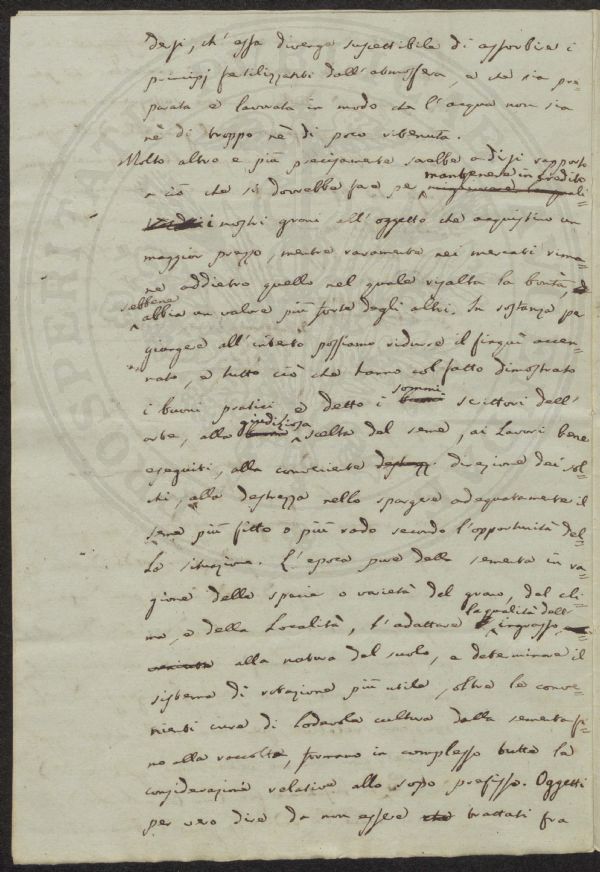 dersi, ch' essa divenga suscettibile di assorbire i
principj fertilizzanti dall'atmosfera, e che sia pre=
parata e lavorata in modo che l'acqua non sia
nè di troppo nè di poco ritenuta.
Molto altro e più precisamente sarebbe a dirsi rapporto
a ciò che si dovrebbe fare per mantenere in credito
i nostri grani all'oggetto che acquistino un
maggior prezzo, mentre raramente nei mercati rima=
ne addietro quello nel quale risalta la bontà,
sebbene abbia un valore più forte degli altri. In sostanza per
giungere all'intento possiamo ridurre il finquì accen=
nato, e tutto ciò che hanno col fatto dimostrato
i buoni pratici e detto i sommi scrittori dell'
arte, alla giudiziosa scelta del seme, ai Lavori bene
eseguiti, alla conveniente direzione dei sol=
chi, alla destrezza nello spargere adequatamente il
seme più fitto o più rado secondo l'opportunità del=
la situazione. L'epoca pure della sementa in ra=
gione della specie o varietà del grano, del cli=
ma, e della Località, l'adattare la qualità dell' ingrasso,
alla natura del suolo, e determinare il
sistema di rotazione più utile, oltre le conve=
nienti cure di Lodevole cultura dalla sementa fi=
no alla raccolta, formano in complesso tutte le
considerazioni relative allo scopo prefisso. Oggetti
per vero dire da non essere trattati fra